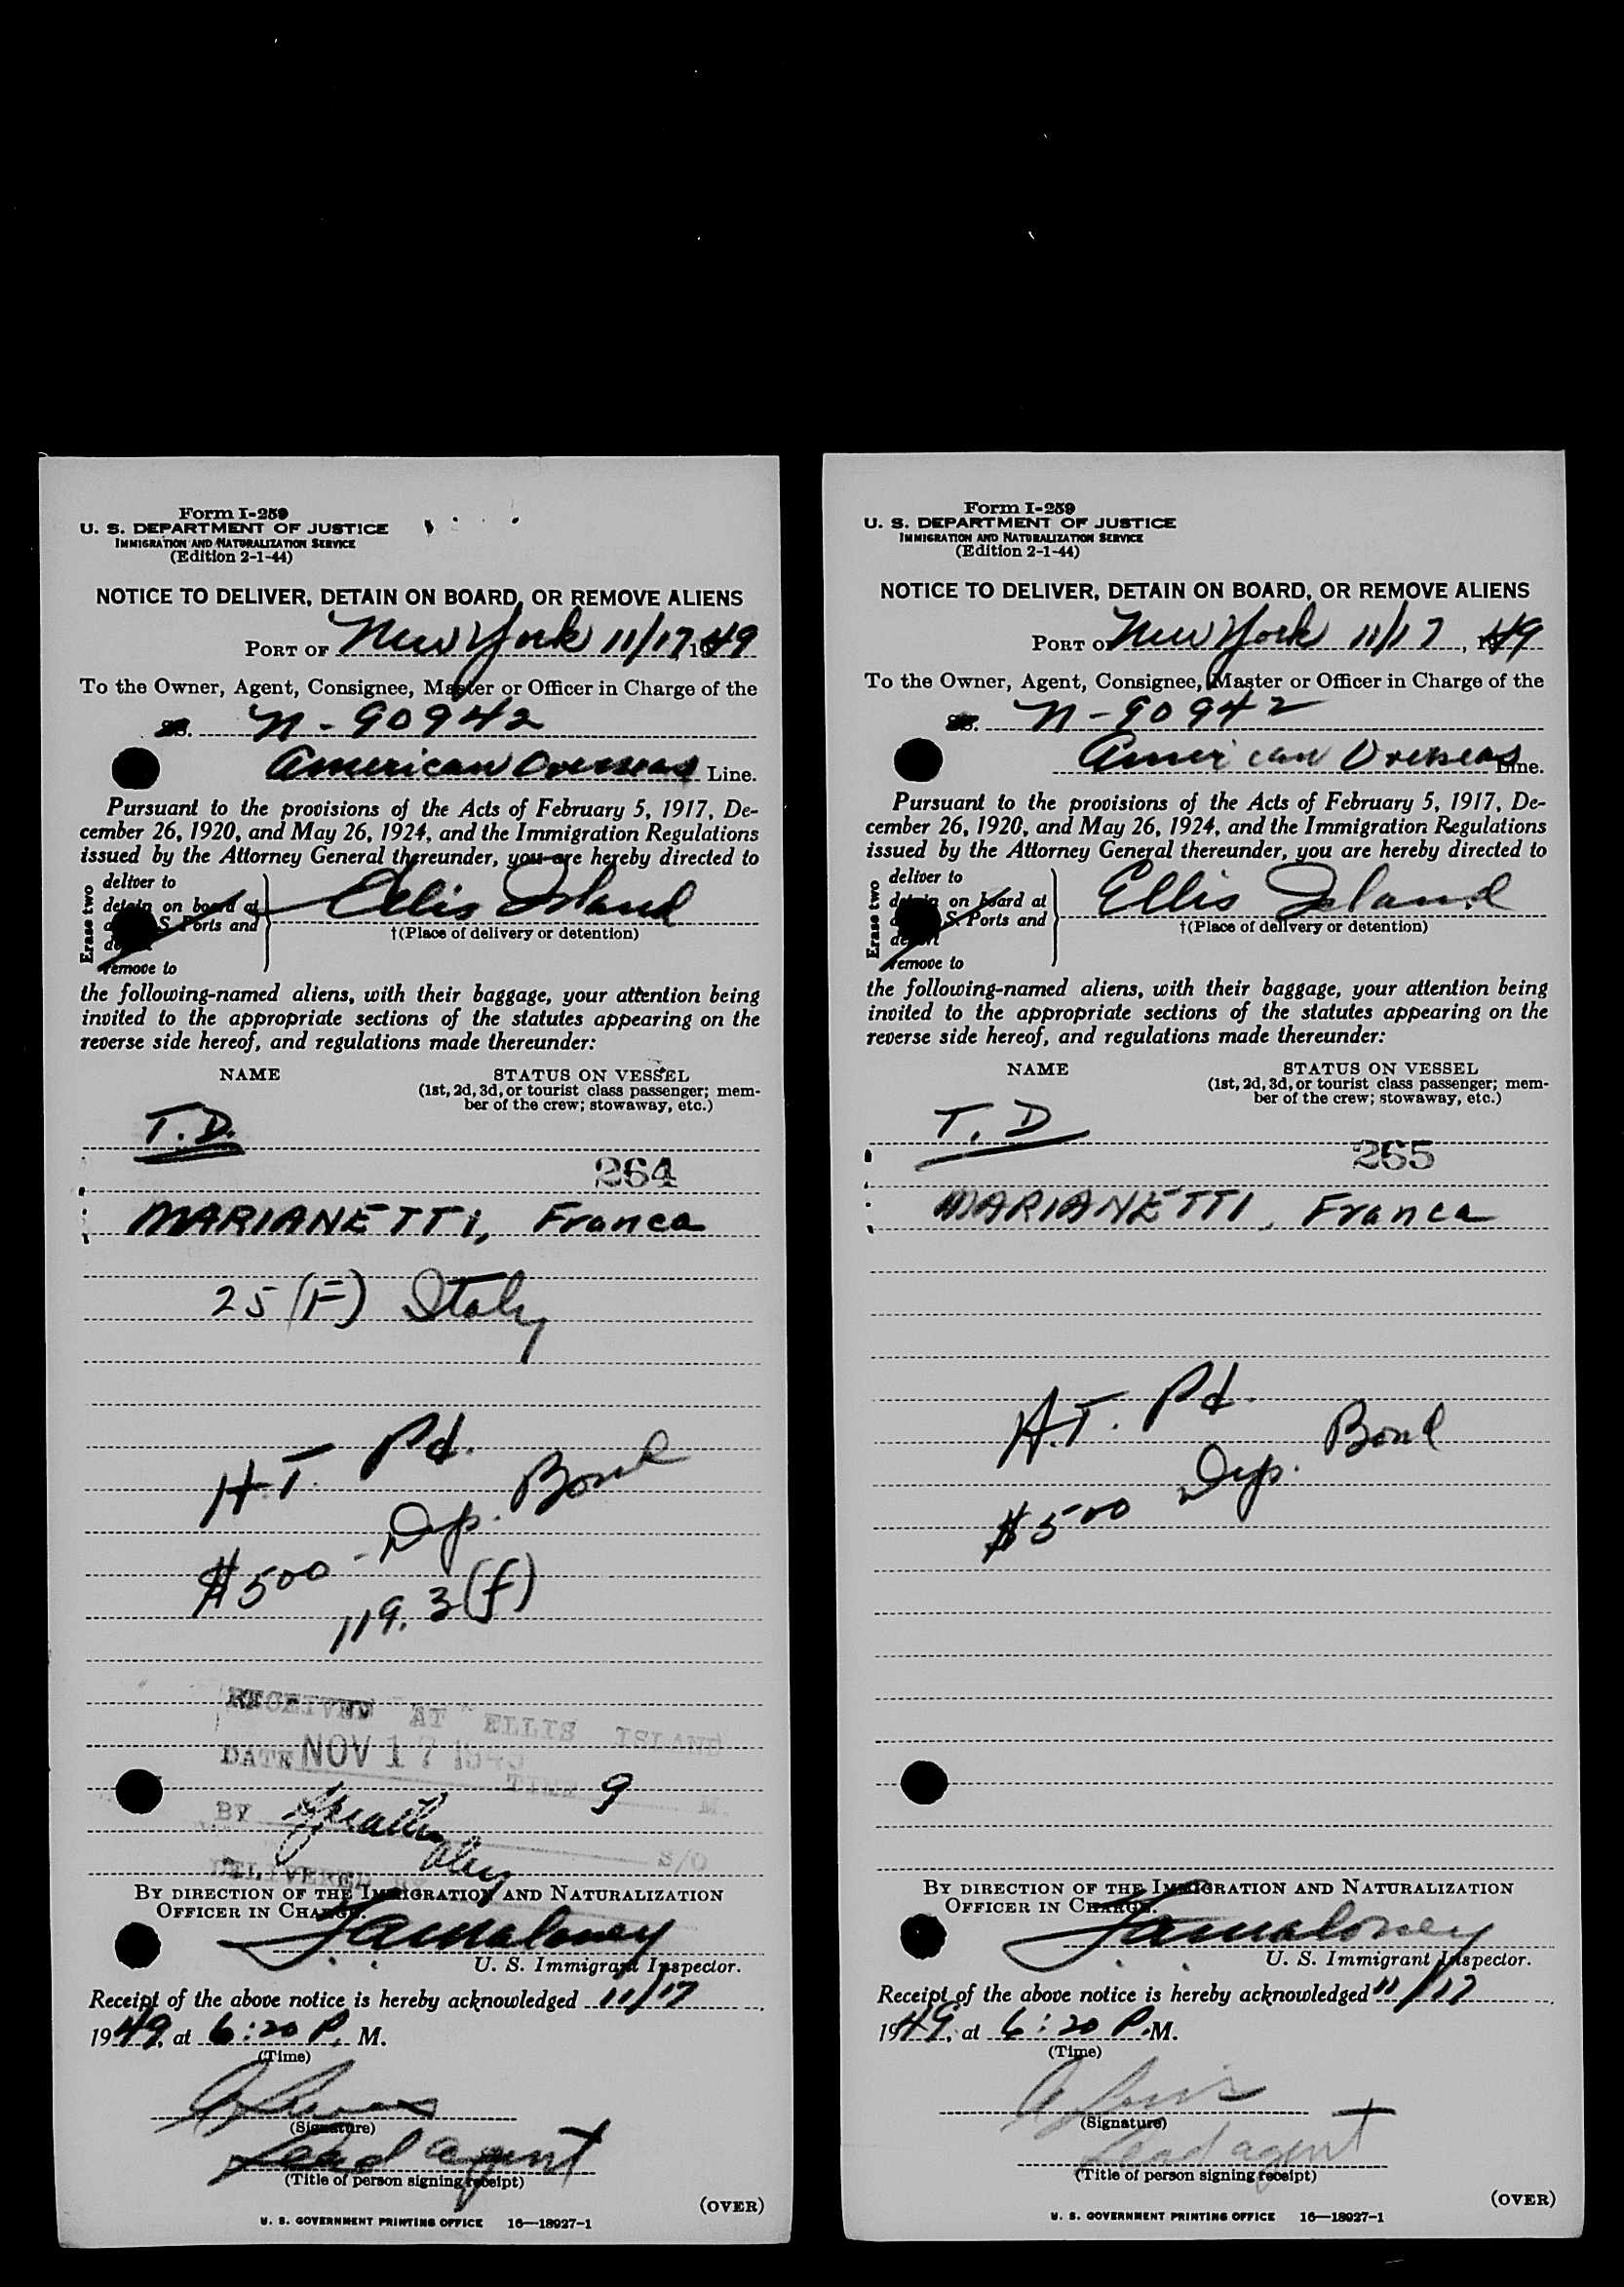 Form I-259
U. S. DEPARTMENT OF JUSTICE
IMMIGRATION AND NATURALIZATION SERVICE
(Edition 2-1-44)
NOTICE TO DELIVER, DETAIN ON BOARD, OR REMOVE ALIENS
PORT OF New York 11/17, 1949
To the Owner, Agent, Consignee, Master or Officer in Charge of the
SS. N-90942
American Overseas Line.
Pursuant to the provisions of the Acts of February 5, 1917, De-
cember 26, 1920, and May 26, 1924, and the Immigration Regulations
issued by the Attorney General thereunder, you are hereby directed to
Erase two
deliver to
detain on board at
S. Ports and
remove to
Ellis Island
†(Place of delivery or detention)
the following-named aliens, with their baggage, your attention being
invited to the appropriate sections of the statutes appearing on the
reverse side hereof, and regulations made thereunder:
NAME STATUS ON VESSEL
(1st, 2d, 3d, or tourist class passenger; mem-
ber of the crew; stowaway, etc.)
T.D.
264
MARIANETTI, Franca
25 (F) Italy
H.T. Pd.
$500 - Dep. Bond
119.3(f)
RECEIVED AT ELLIS ISLAND
DATE NOV 17 1949
TIME 9 M.
BY
S/O
DELIVERED BY
BY DIRECTION OF THE IMMIGRATION AND NATURALIZATION
OFFICER IN CHARGE.
Maloney
U. S. Immigrant Inspector.
Receipt of the above notice is hereby acknowledged 11/17
1949, at 6:20 P. M.
(Time)
(Signature)
Lead agent
(Title of person signing receipt)
(OVER)
U. S. GOVERNMENT PRINTING OFFICE 16—18927-1
Form I-259
U. S. DEPARTMENT OF JUSTICE
IMMIGRATION AND NATURALIZATION SERVICE
(Edition 2-1-44)
NOTICE TO DELIVER, DETAIN ON BOARD, OR REMOVE ALIENS
PORT OF New York 11/17, 1949
To the Owner, Agent, Consignee, Master or Officer in Charge of the
SS. N-90942
American Overseas Line.
Pursuant to the provisions of the Acts of February 5, 1917, De-
cember 26, 1920, and May 26, 1924, and the Immigration Regulations
issued by the Attorney General thereunder, you are hereby directed to
Erase two
deliver to
detain on board at
S. Ports and
deport
remove to
Ellis Island
†(Place of delivery or detention)
the following-named aliens, with their baggage, your attention being
invited to the appropriate sections of the statutes appearing on the
reverse side hereof, and regulations made thereunder:
NAME STATUS ON VESSEL
(1st, 2d, 3d, or tourist class passenger; mem-
ber of the crew; stowaway, etc.)
T.D
265
MARIANETTI, Franca
H.T. Pd.
$500 Dep. Bond
BY DIRECTION OF THE IMMIGRATION AND NATURALIZATION
OFFICER IN CHARGE.
Maloney
U. S. Immigrant Inspector.
Receipt of the above notice is hereby acknowledged 11/17
1949, at 6:20 P. M.
(Time)
(Signature)
Lead agent
(Title of person signing receipt)
(OVER)
U. S. GOVERNMENT PRINTING OFFICE 16—18927-1